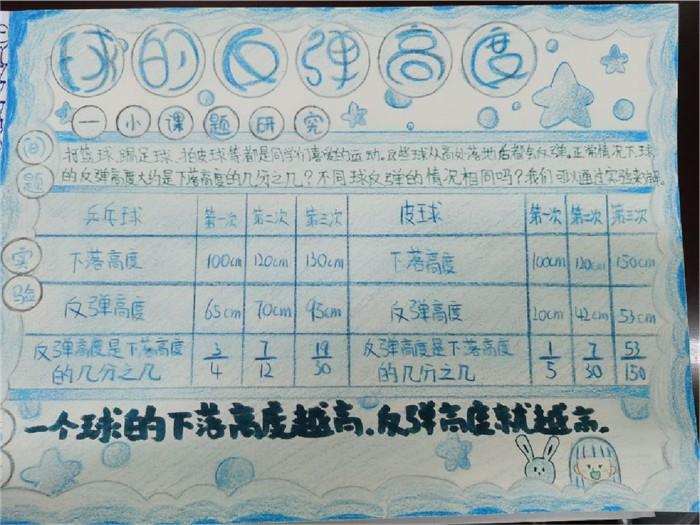 球的反弹高度
一小课题研究
问题
打篮球、踢足球、拍皮球等都是同学们喜爱的运动。这些球从高处落地后都会反弹。正常情况下,球
的反弹高度大约是下落高度的几分之几?不同球反弹的情况相同吗?我们可以通过实验来了解。
实验
乒乓球 第一次 第二次 第三次 皮球 第一次 第二次 第三次
下落高度 100cm 120cm 130cm 下落高度 100cm 120cm 150cm
反弹高度 65cm 70cm 95cm 反弹高度 20cm 42cm 53cm
反弹高度是下落高度的几分之几 3/4 7/12 19/30 反弹高度是下落高度的几分之几 1/5 7/30 53/150
一个球的下落高度越高、反弹高度就越高。